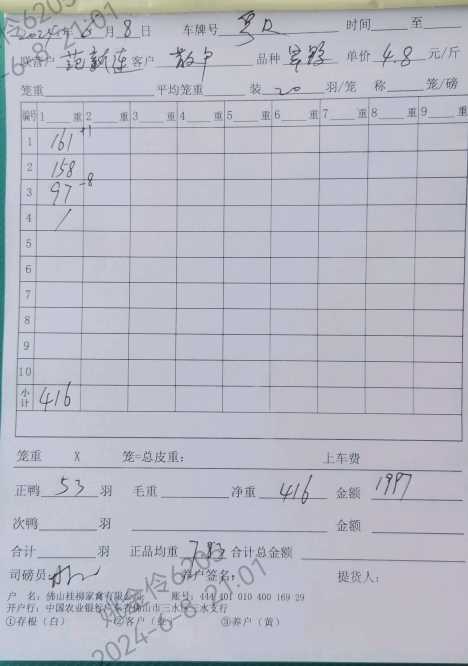 2024年6月8日 车牌号 时间 至
养户 范新连 客户 散户 品种 单价 4.8 元/斤
笼重 平均笼重 装 20 羽/笼 称 笼/磅
编号 1 重 2 重 3 重 4 重 5 重 6 重 7 重 8 重 9 重
1 161 +1
2 158
3 97 -8
4 /
5
6
7
8
9
10
小计 416
笼重 X 笼=总皮重: 上车费
正鸭 53 羽 毛重 净重 416 金额 1997
次鸭 羽 金额
合计 羽 正品均重 7.85 合计总金额
司磅员 养户签名: 提货人:
户 名: 佛山桂柳家禽有限公司 账号: 444 401 010 400 169 29
开户行: 中国农业银行 佛山市三水 三水支行
①存根(白) ②客户( ) ③养户(黄)
2024-6-8 21:01